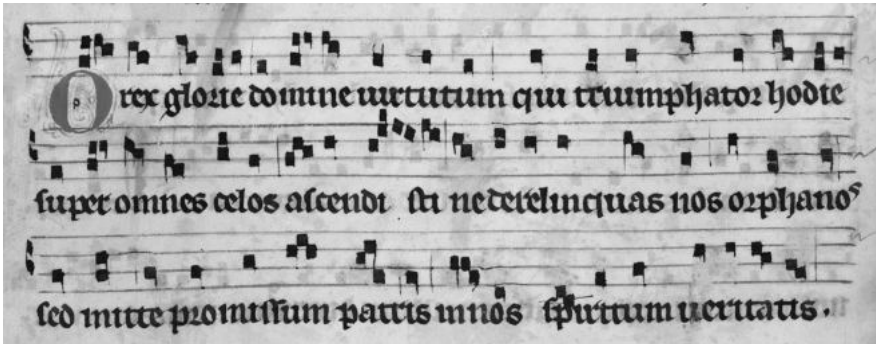 O rex glorie domine uirtutum qui triumphator hodie
super omnes celos ascendi sti ne derelinquas nos orphanos
sed mitte promissum patris in nos spiritum ueritatis.